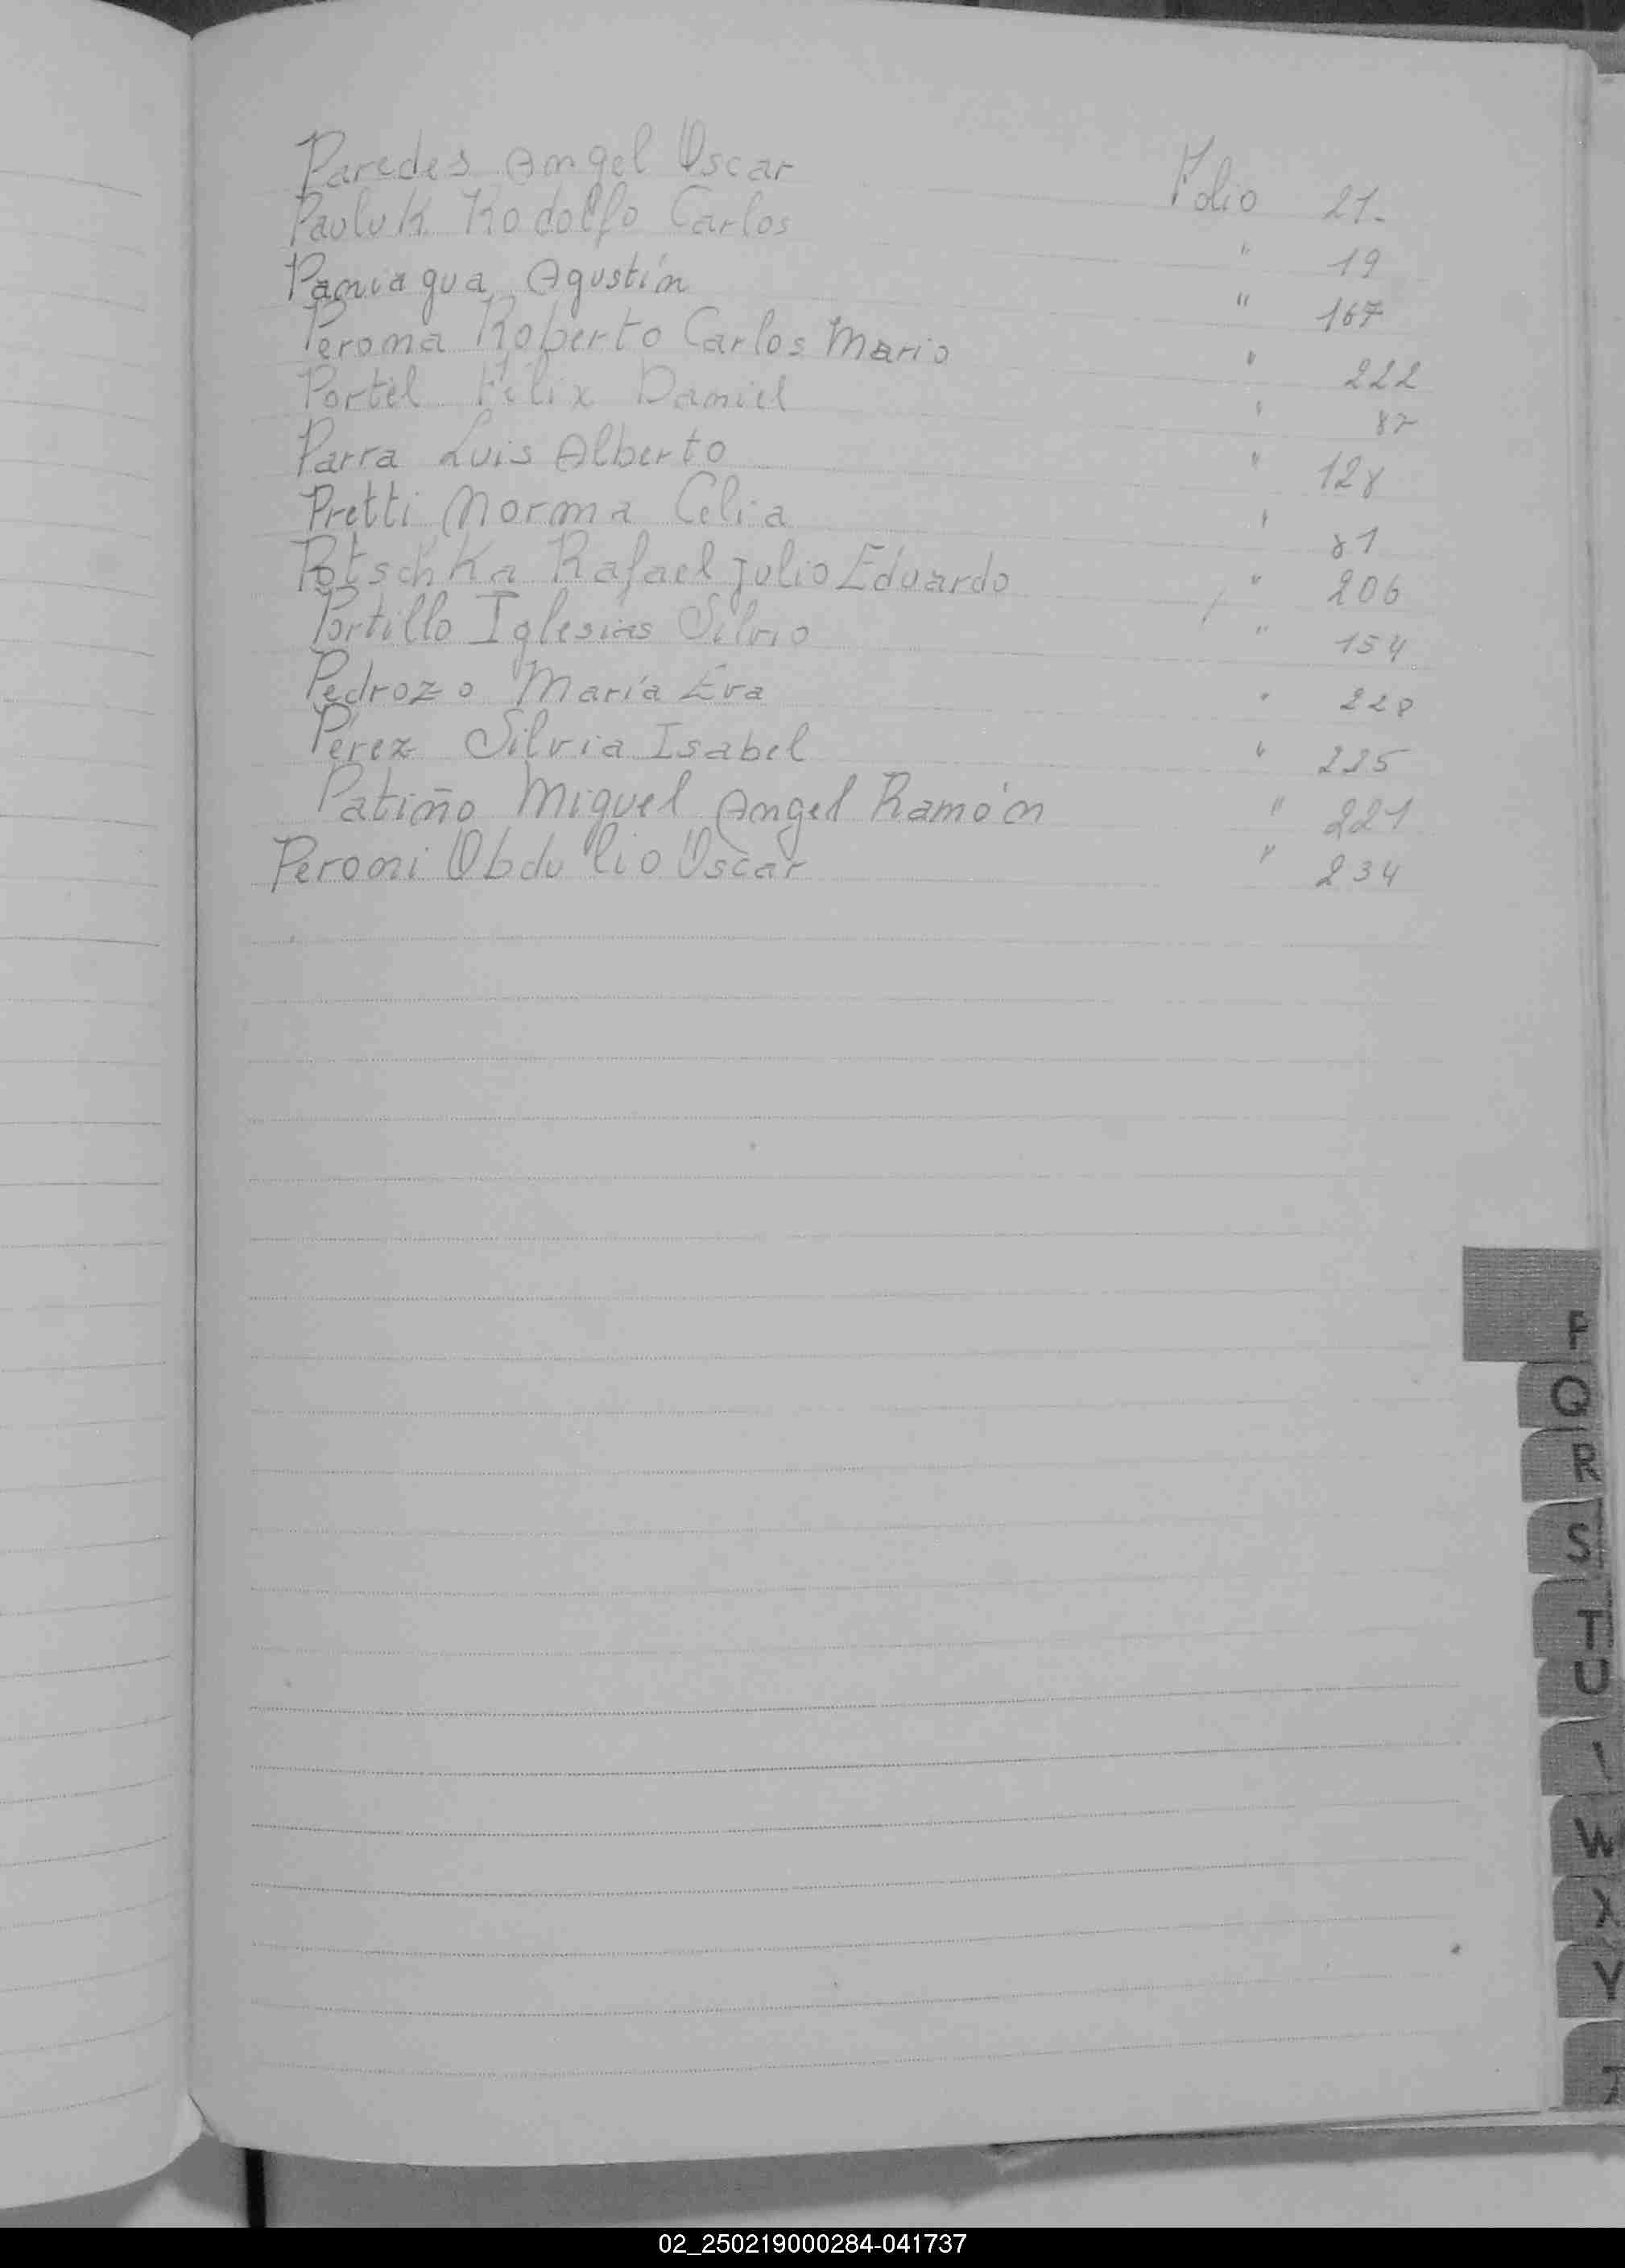 Paredes Angel Oscar Folio 21-
Pauluk Rodolfo Carlos " 19
Paniagua Agustín " 167
Perona Roberto Carlos Mario " 222
Portel Félix Daniel "
Parra Luis Alberto " 128
Pretti Norma Celia " 81
Potschka Rafael Julio Eduardo " 206
Portillo Iglesias Silvio " 154
Pedrozo María Eva " 228
Pérez Silvia Isabel " 225
Patiño Miguel Angel Ramón " 221
Peroni Obdulio Oscar " 234
P
Q
R
S
T
U
W
X
Y
02_250219000284-041737